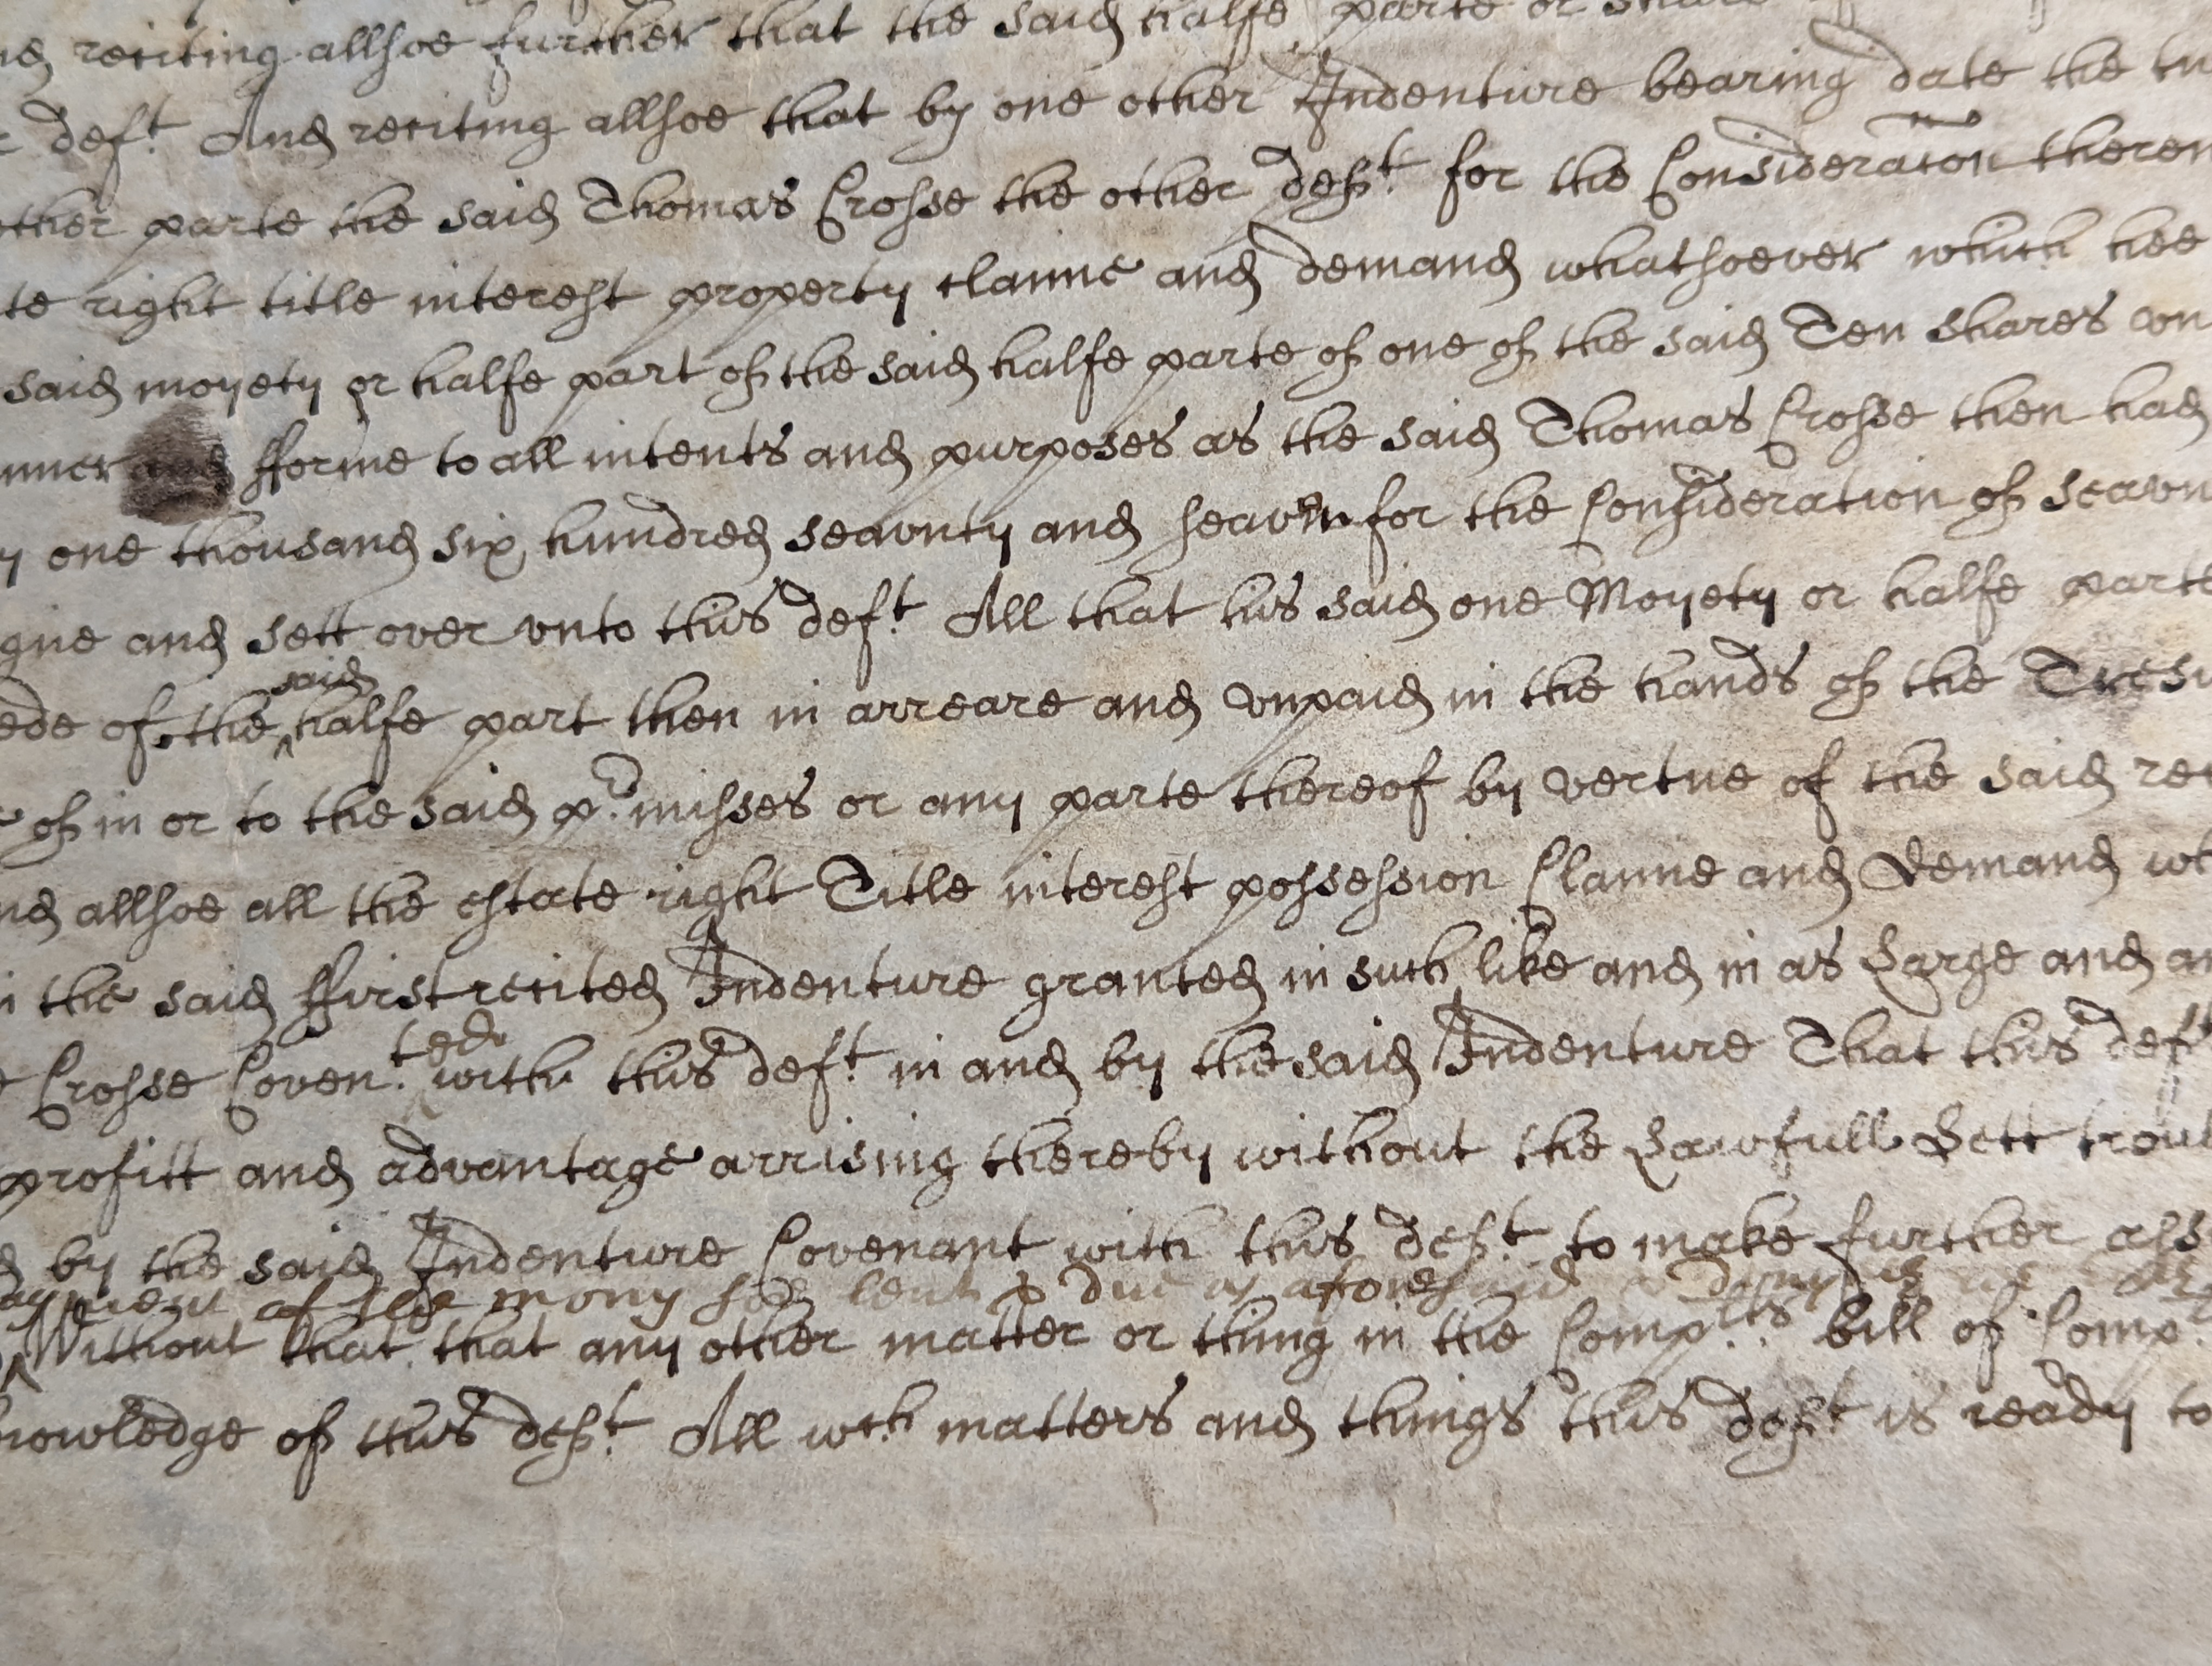 reciting allsoe further that the said halfe parte or
deft. And reciting allsoe that by one other Indenture bearing date the
other parte the said Thomas Crosse the other deft. for the Consideracon
right title interest property claime and demand whatsoever which hee
said moyety or halfe part of the said halfe parte of one of the said Ten shares
and fforme to all intents and purposes as the said Thomas Crosse then had
one thousand six hundred seaventy and seaven for the Consideration of
and sett over vnto this deft. All that his said one Moyety or halfe parte
of the said halfe part then in arreare and vnpaid in the hands of the
of in or to the said pr.misses or any parte thereof by vertue of the said
allsoe all the estate right Title interest possession Claime and Demand
the said ffirst recited Indenture granted in such like and in as Large and
Crosse Coven.ted with this deft. in and by the said Indenture That this deft
profitt and advantage arrising thereby without the Lawfull Lett
by the said Indenture Covenant with this deft. to make further
of the mony soe lent & due as aforesaid
Without that that any other matter or thing in the Complts. bill of Compt
of this deft. All wch matters and things this deft is ready to